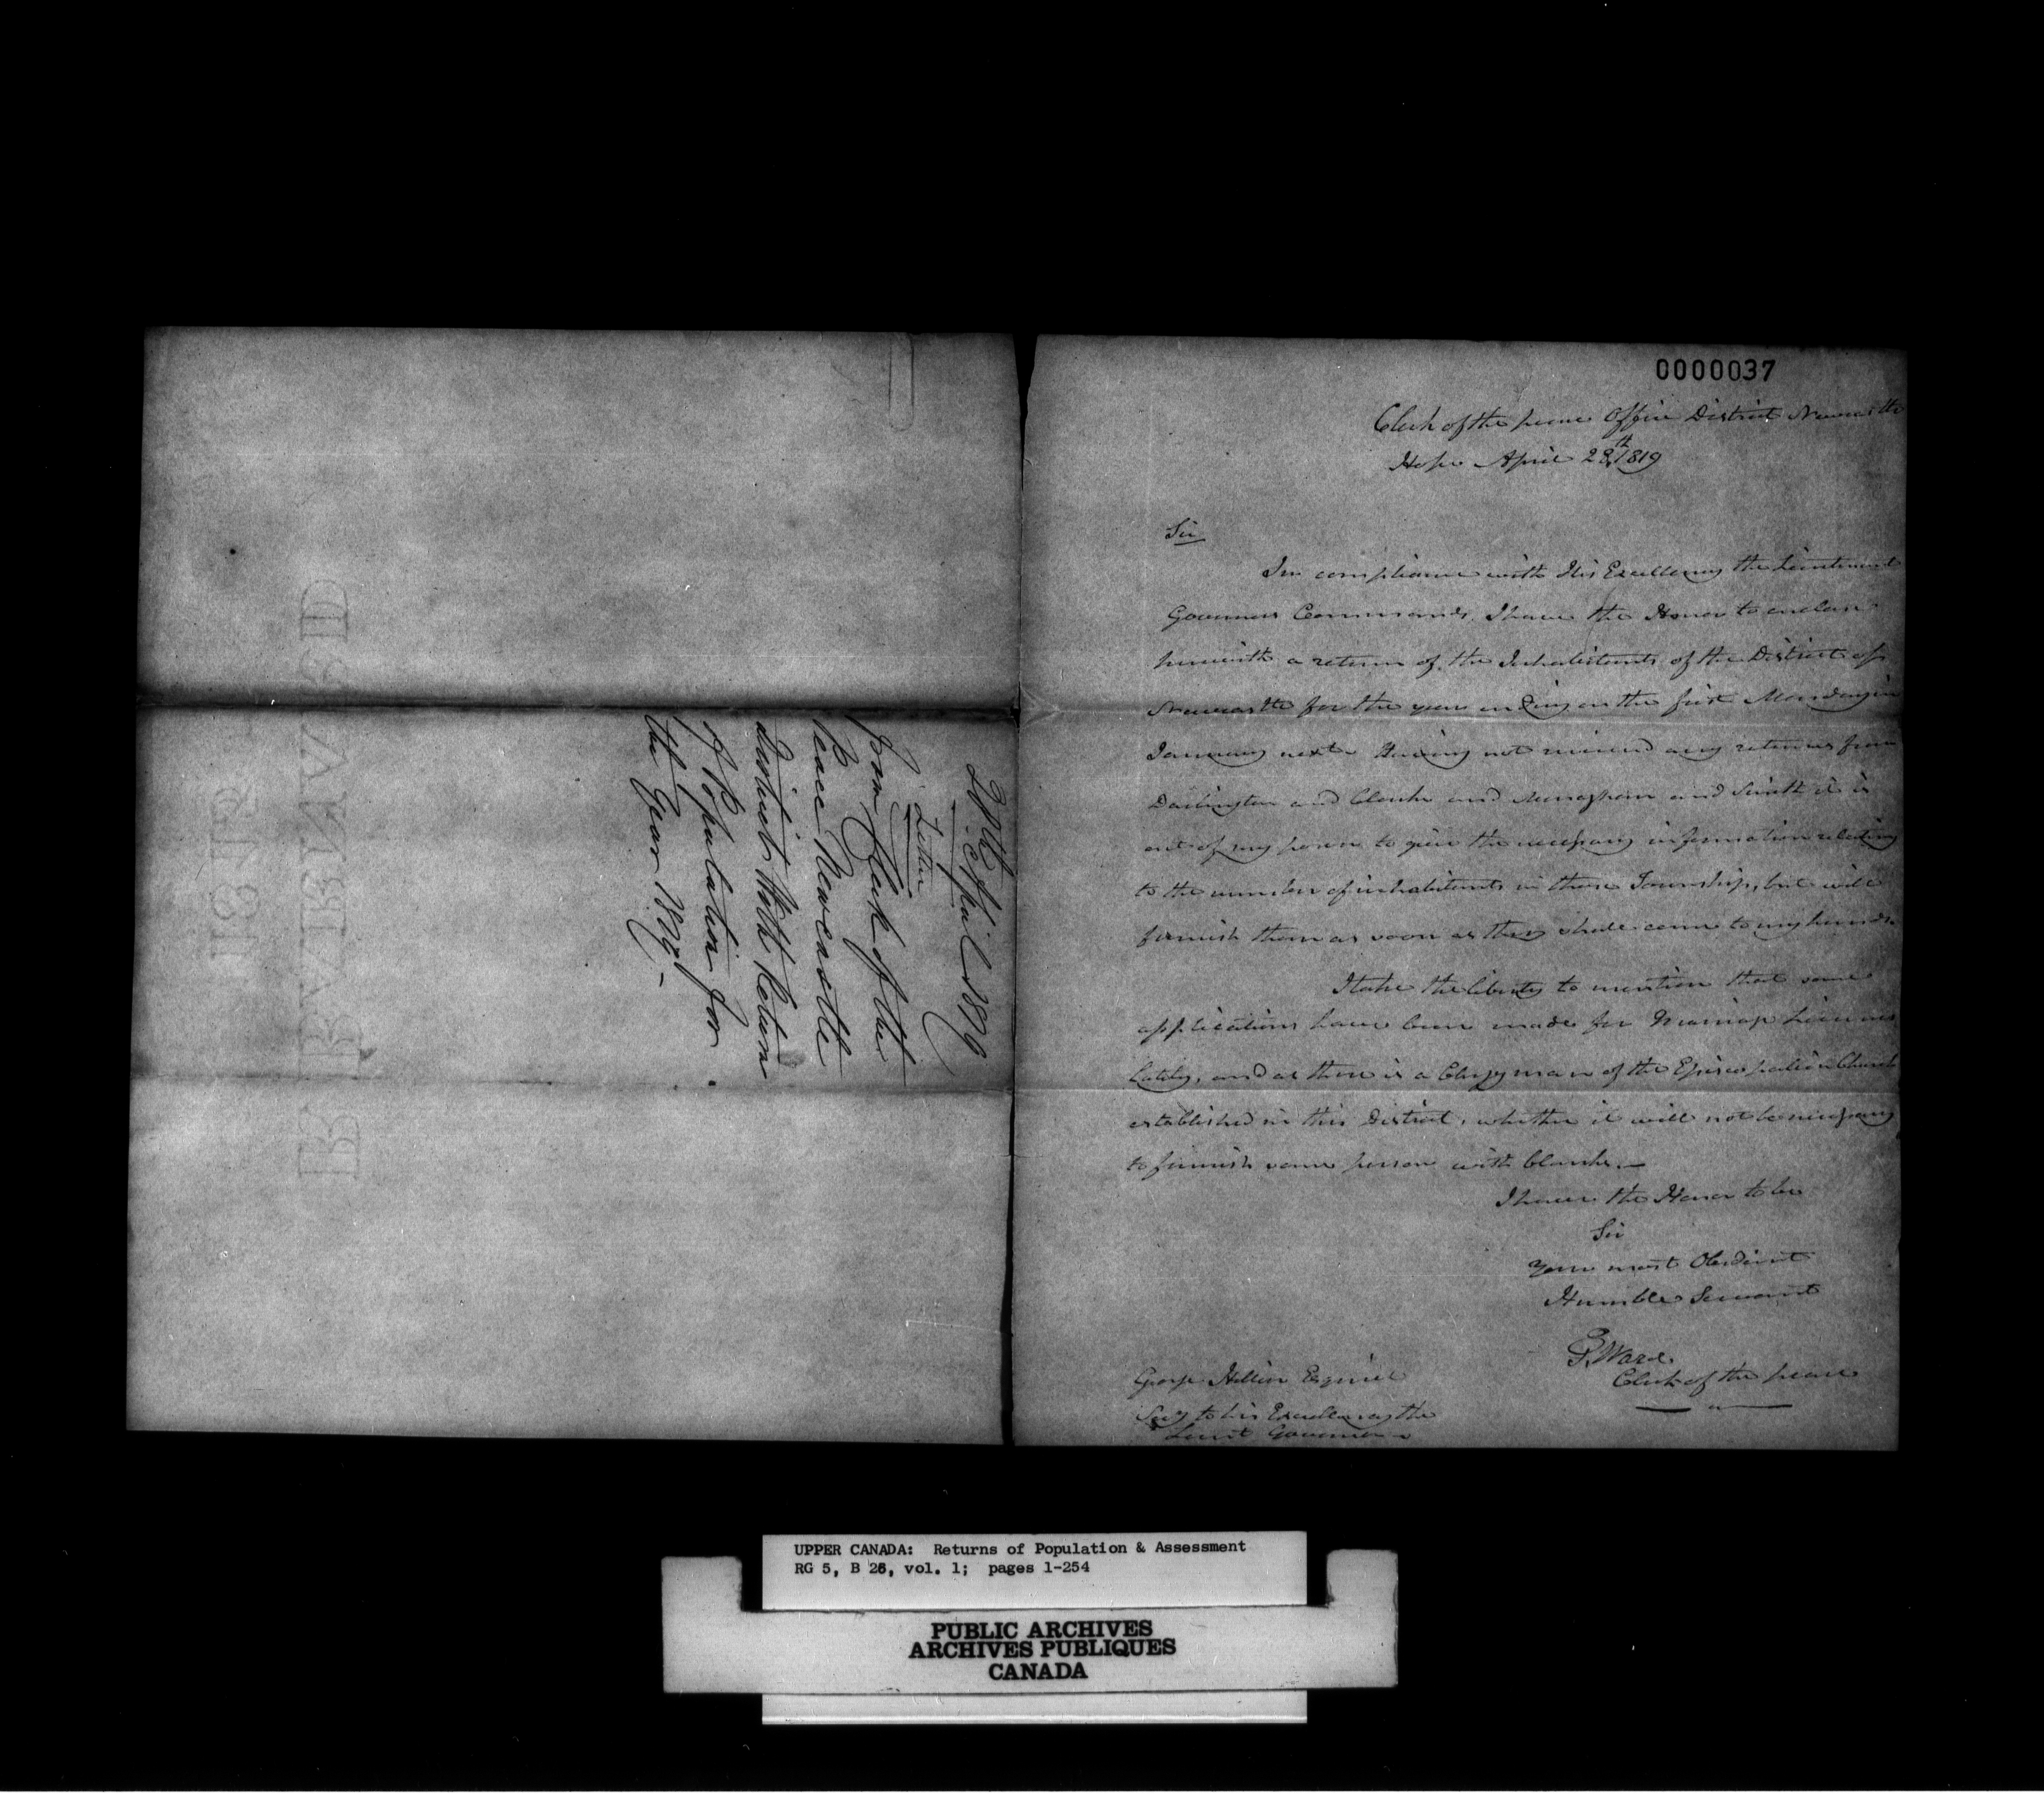 0000037
Clerk of the peace Office District Newcastle
Hope April 28th 1819
Sir
In compliance with His Excellency the Lieutenant
Governors Commands, I have the Honor to enclose
herewith a return of the Inhabitants of the District of
Newcastle for the year ending on the first Monday in
January next Having not received any returns from
Darlington and Clarke and Monaghan and Smith it is
out of my power to give the necessary information relating
to the number of inhabitants in those Townships, but will
furnish them as soon as they shall come to my hands.
I take the liberty to mention that some
applications have been made for Marriage Licences
Lately, and as there is a Clergyman of the Episcopalian Church
established in this District, whether it will not be necessary
to furnish some person with blanks.—
I have the Honor to be
Sir
Your most Obedient
Humble Servant
Ward
Clerk of the peace
George Hillier Esquire
Secy to his Excellency the
Lieut Governor
28th April 1819
Letter
from Clerk of the
Peace Newcastle
District With Return
of Population for
the Year 1819.-
UPPER CANADA: Returns of Population & Assessment
RG 5, B 26, vol. 1; pages 1-254
PUBLIC ARCHIVES
ARCHIVES PUBLIQUES
CANADA